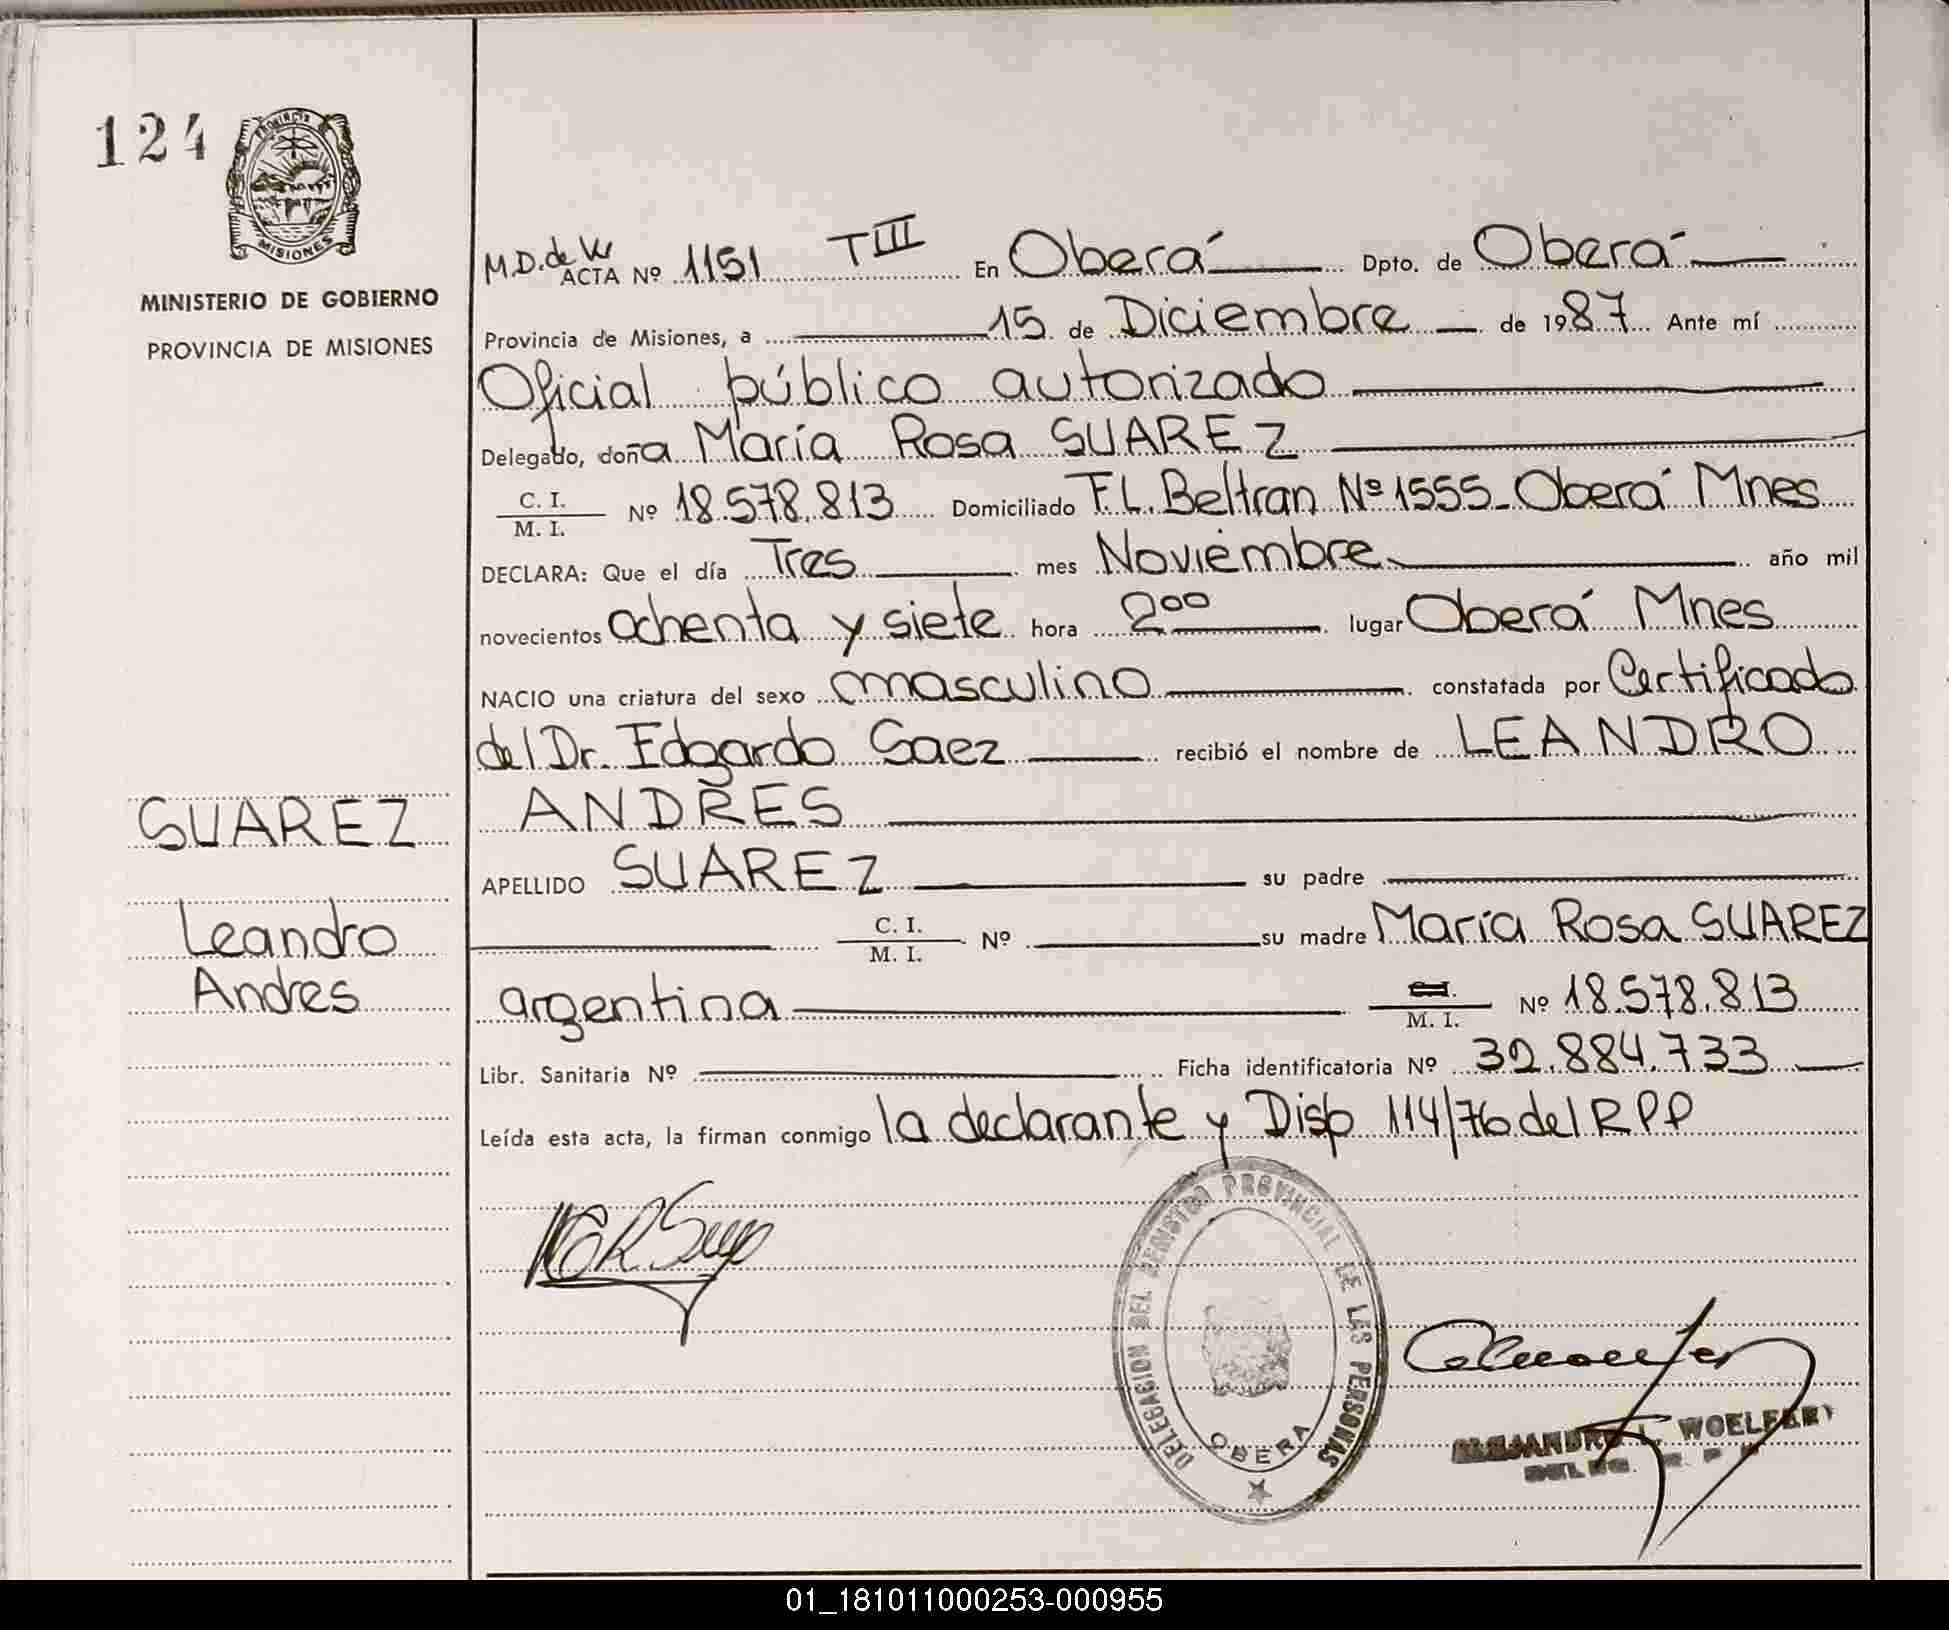 124
PROVINCIA DE
MISIONES
MINISTERIO DE GOBIERNO
PROVINCIA DE MISIONES
SUAREZ
Leandro
Andres
M.D. de
ACTA Nº 1151 T III En Oberá Dpto. de Oberá
Provincia de Misiones, a 15 de Diciembre de 1987 Ante mí
Oficial público autorizado
Delegado, doña María Rosa SUAREZ
C. I.
M. I. Nº 18.578.813 Domiciliado F.L. Beltran Nº 1555_ Oberá Mnes
DECLARA: Que el día Tres mes Noviembre año mil
novecientos ochenta y siete hora 2⁰⁰ lugar Oberá Mnes
NACIO una criatura del sexo masculino constatada por Certificado
del Dr. Edgardo Saez recibió el nombre de LEANDRO
ANDRES
APELLIDO SUAREZ su padre
C. I.
M. I. Nº su madre María Rosa SUAREZ
argentina M. I. Nº 18.578.813
Libr. Sanitaria Nº Ficha identificatoria Nº 32.884.733
Leída esta acta, la firman conmigo la declarante y Disp 114/76 del RPP
DELEGACION DEL REGISTRO PROVINCIAL DE LAS PERSONAS
OBERA
WOELFERT
01_181011000253-000955